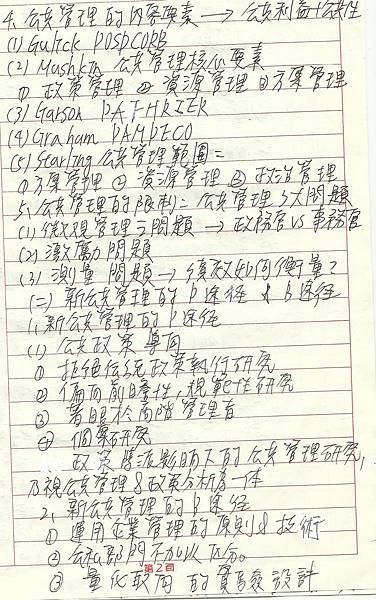 4. 公共管理的內容要素 → 公共利益+公共性
(1) Gulick POSDCORB
(2) Mushkin 公共管理核心要素
① 政策管理 ② 資源管理 ③ 方案管理
(3) Garson PAFHRIER
(4) Graham PAMPECO
(5) Starling 公共管理範圍=
①方案管理 ② 資源管理 ③ 政治管理
5. 公共管理的限制= 公共管理3大問題
(1) 微觀管理=問題 → 政務官VS事務官
(2) 激勵問題
(3) 測量問題 → 績效如何衡量?
(二) 新公共管理的P途徑 & B途徑
1. 新公共管理的P途徑
(1) 公共政策導向
① 拒絕傳統政策執行研究
② 偏向前瞻性,規範性研究
③ 著眼於高階管理者
④ 個案研究
政策學派影響下的公共管理研究,
乃視公共管理&政策分析為一体
2. 新公共管理的B途徑
① 運用企業管理的原則&技術
② 公私部門不加以區分。
第2頁
③ 量化取向的實驗設計